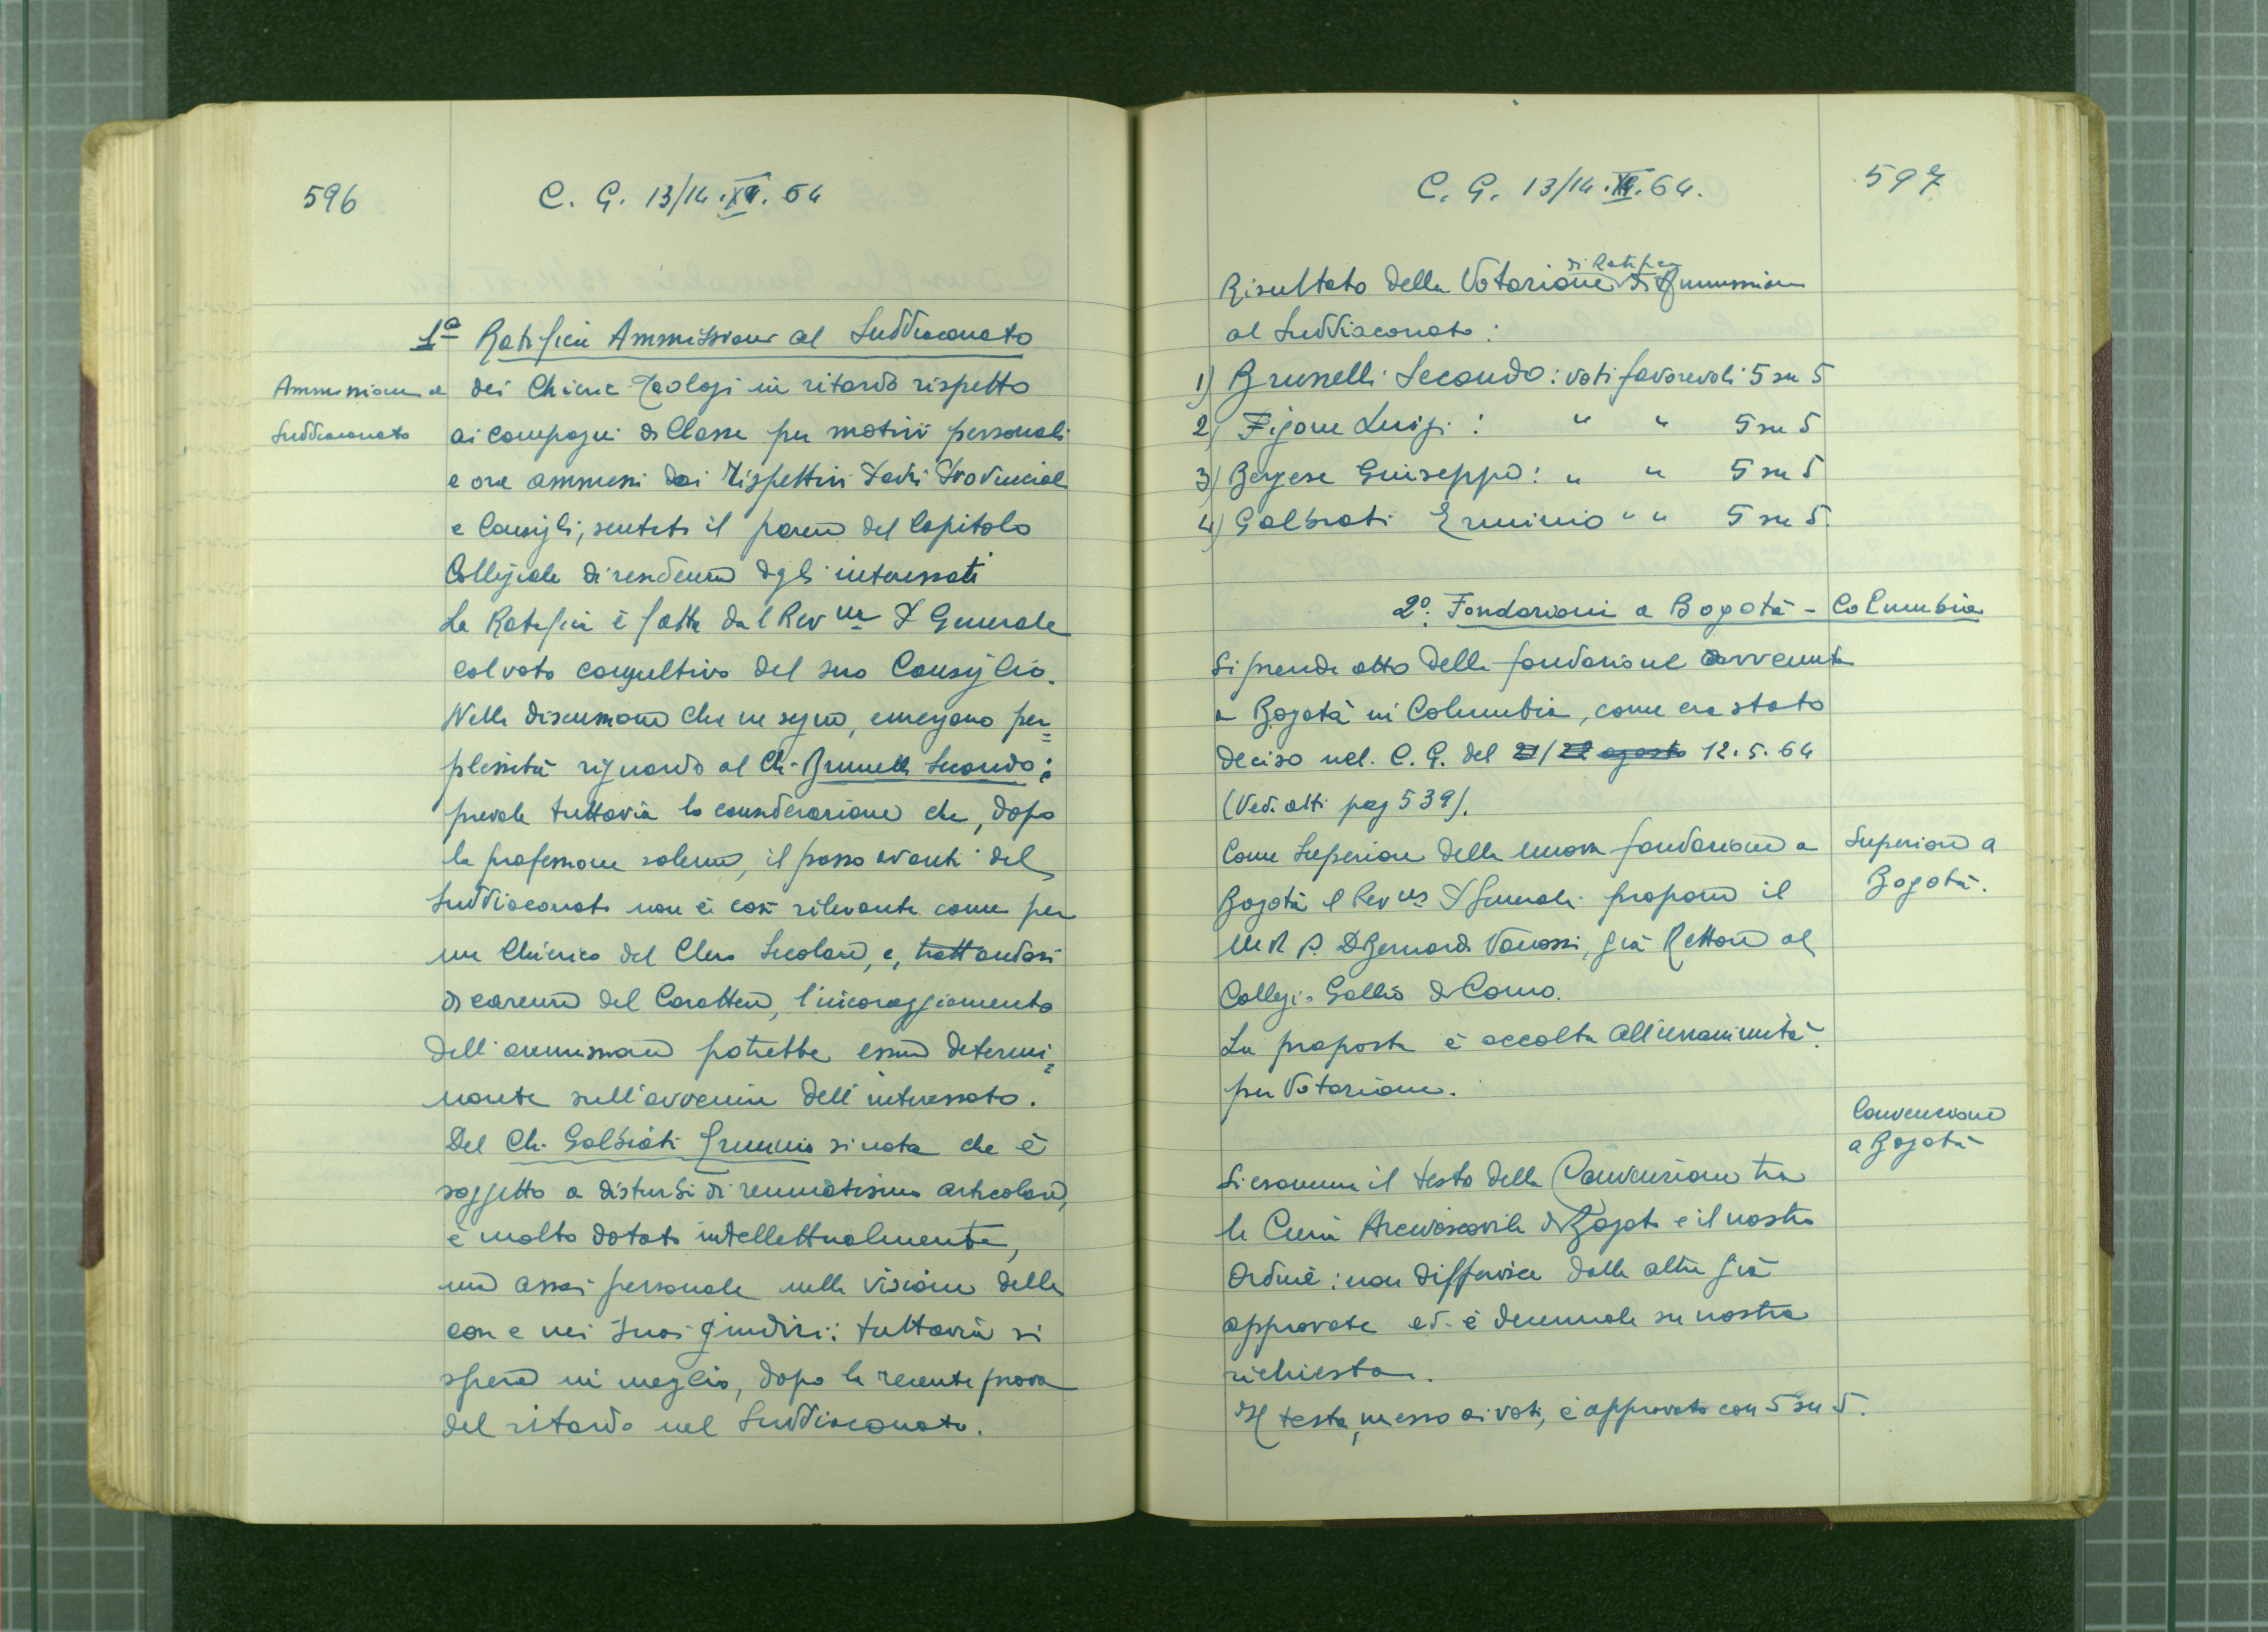 596
C. G. 13/14.XI.64
1ª Ratifica Ammissione al Suddiaconato
Ammissione al
Suddiaconato
dei Chierici Teologi in ritardo rispetto
ai compagni di Classe per motivi personali
e ora ammessi dai rispettivi Padri Provinciali
e Consigli, sentito il parere del Capitolo
Collegiale di residenza degli interessati
La Ratifica è fatta dal Rev.mo P. Generale
col voto consultivo del suo Consiglio.
Nella discussione che ne segue, emergono per=
plessità riguardo al Ch. Brunelli Secondo:
prevale tuttavia la considerazione che, dopo
la professione solenne, il passo avanti del
Suddiaconato non è così rilevante come per
un Chierico del Clero Secolare, e, trattandosi
di carenze del Carattere, l'incoraggiamento
dell'ammissione potrebbe essere determi=
nante sull'avvenire dell'interessato.
Del Ch. Galbiati Erminio si nota che è
soggetto a disturbi di reumatismo articolare,
è molto dotato intellettualmente,
ma assai personale nella visione delle
cose e nei suoi giudizi: tuttavia si
spera in meglio, dopo la recente prova
del ritardo nel Suddiaconato.
C. G. 13/14.XI.64.
597
Risultato della Votazione di Ratifica di Ammissione
al Suddiaconato:
1) Brunelli Secondo: voti favorevoli 5 su 5
2) Figone Luigi: " " 5 su 5
3) Bergese Giuseppe: " " 5 su 5
4) Galbiati Erminio " " 5 su 5
2º. Fondazioni a Bogotà - Columbia
Si prende atto della fondazione avvenuta
a Bogotà in Columbia, come era stato
deciso nel C. G. del 21/22 agosto 12.5.64
(Vedi atti pag 539).
Come Superiore della nuova fondazione a
Bogotà il Rev.mo P. Generale propone il
M R P. D Bernardo Vanossi, già Rettore al
Collegio Gallio di Como.
La proposta è accolta all'unanimità
per Votazione.
Superiore a
Bogotà.
Convenzione
a Bogotà
Si esamina il testo della Convenzione tra
la Curia Arcivescovile di Bogotà e il nostro
Ordine: non differisce dalle altre già
approvate ed è decennale su nostra
richiesta.
Il testo, messo ai voti, è approvato con 5 su 5.